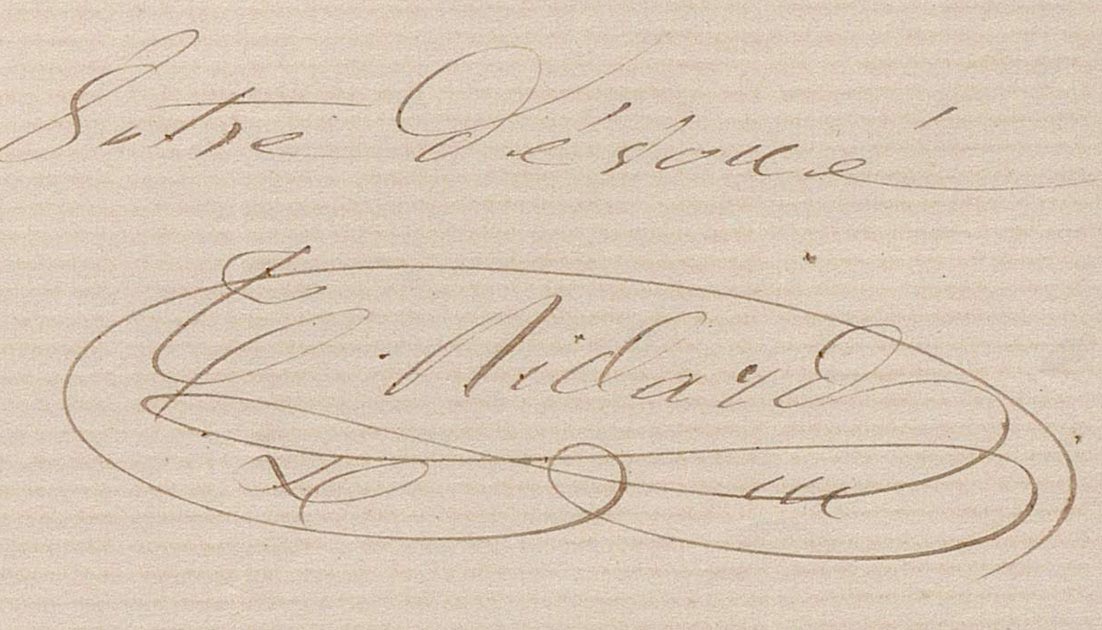 Votre dévoué
Nidard